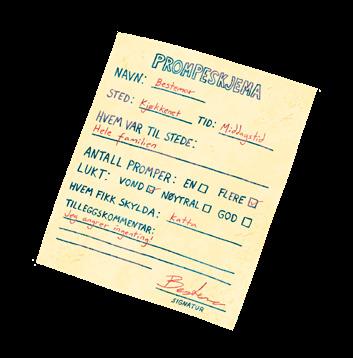 PROMPESKJEMA
NAVN: Bestemor
STED: Kjøkkenet TID: Middagstid
HVEM VAR TIL STEDE:
Hele familien
ANTALL PROMPER: EN FLERE
LUKT: VOND NØYTRAL GOD
HVEM FIKK SKYLDA: Katta
TILLEGGSKOMMENTAR:
Jeg angrer ingenting!
Bestemor
SIGNATUR